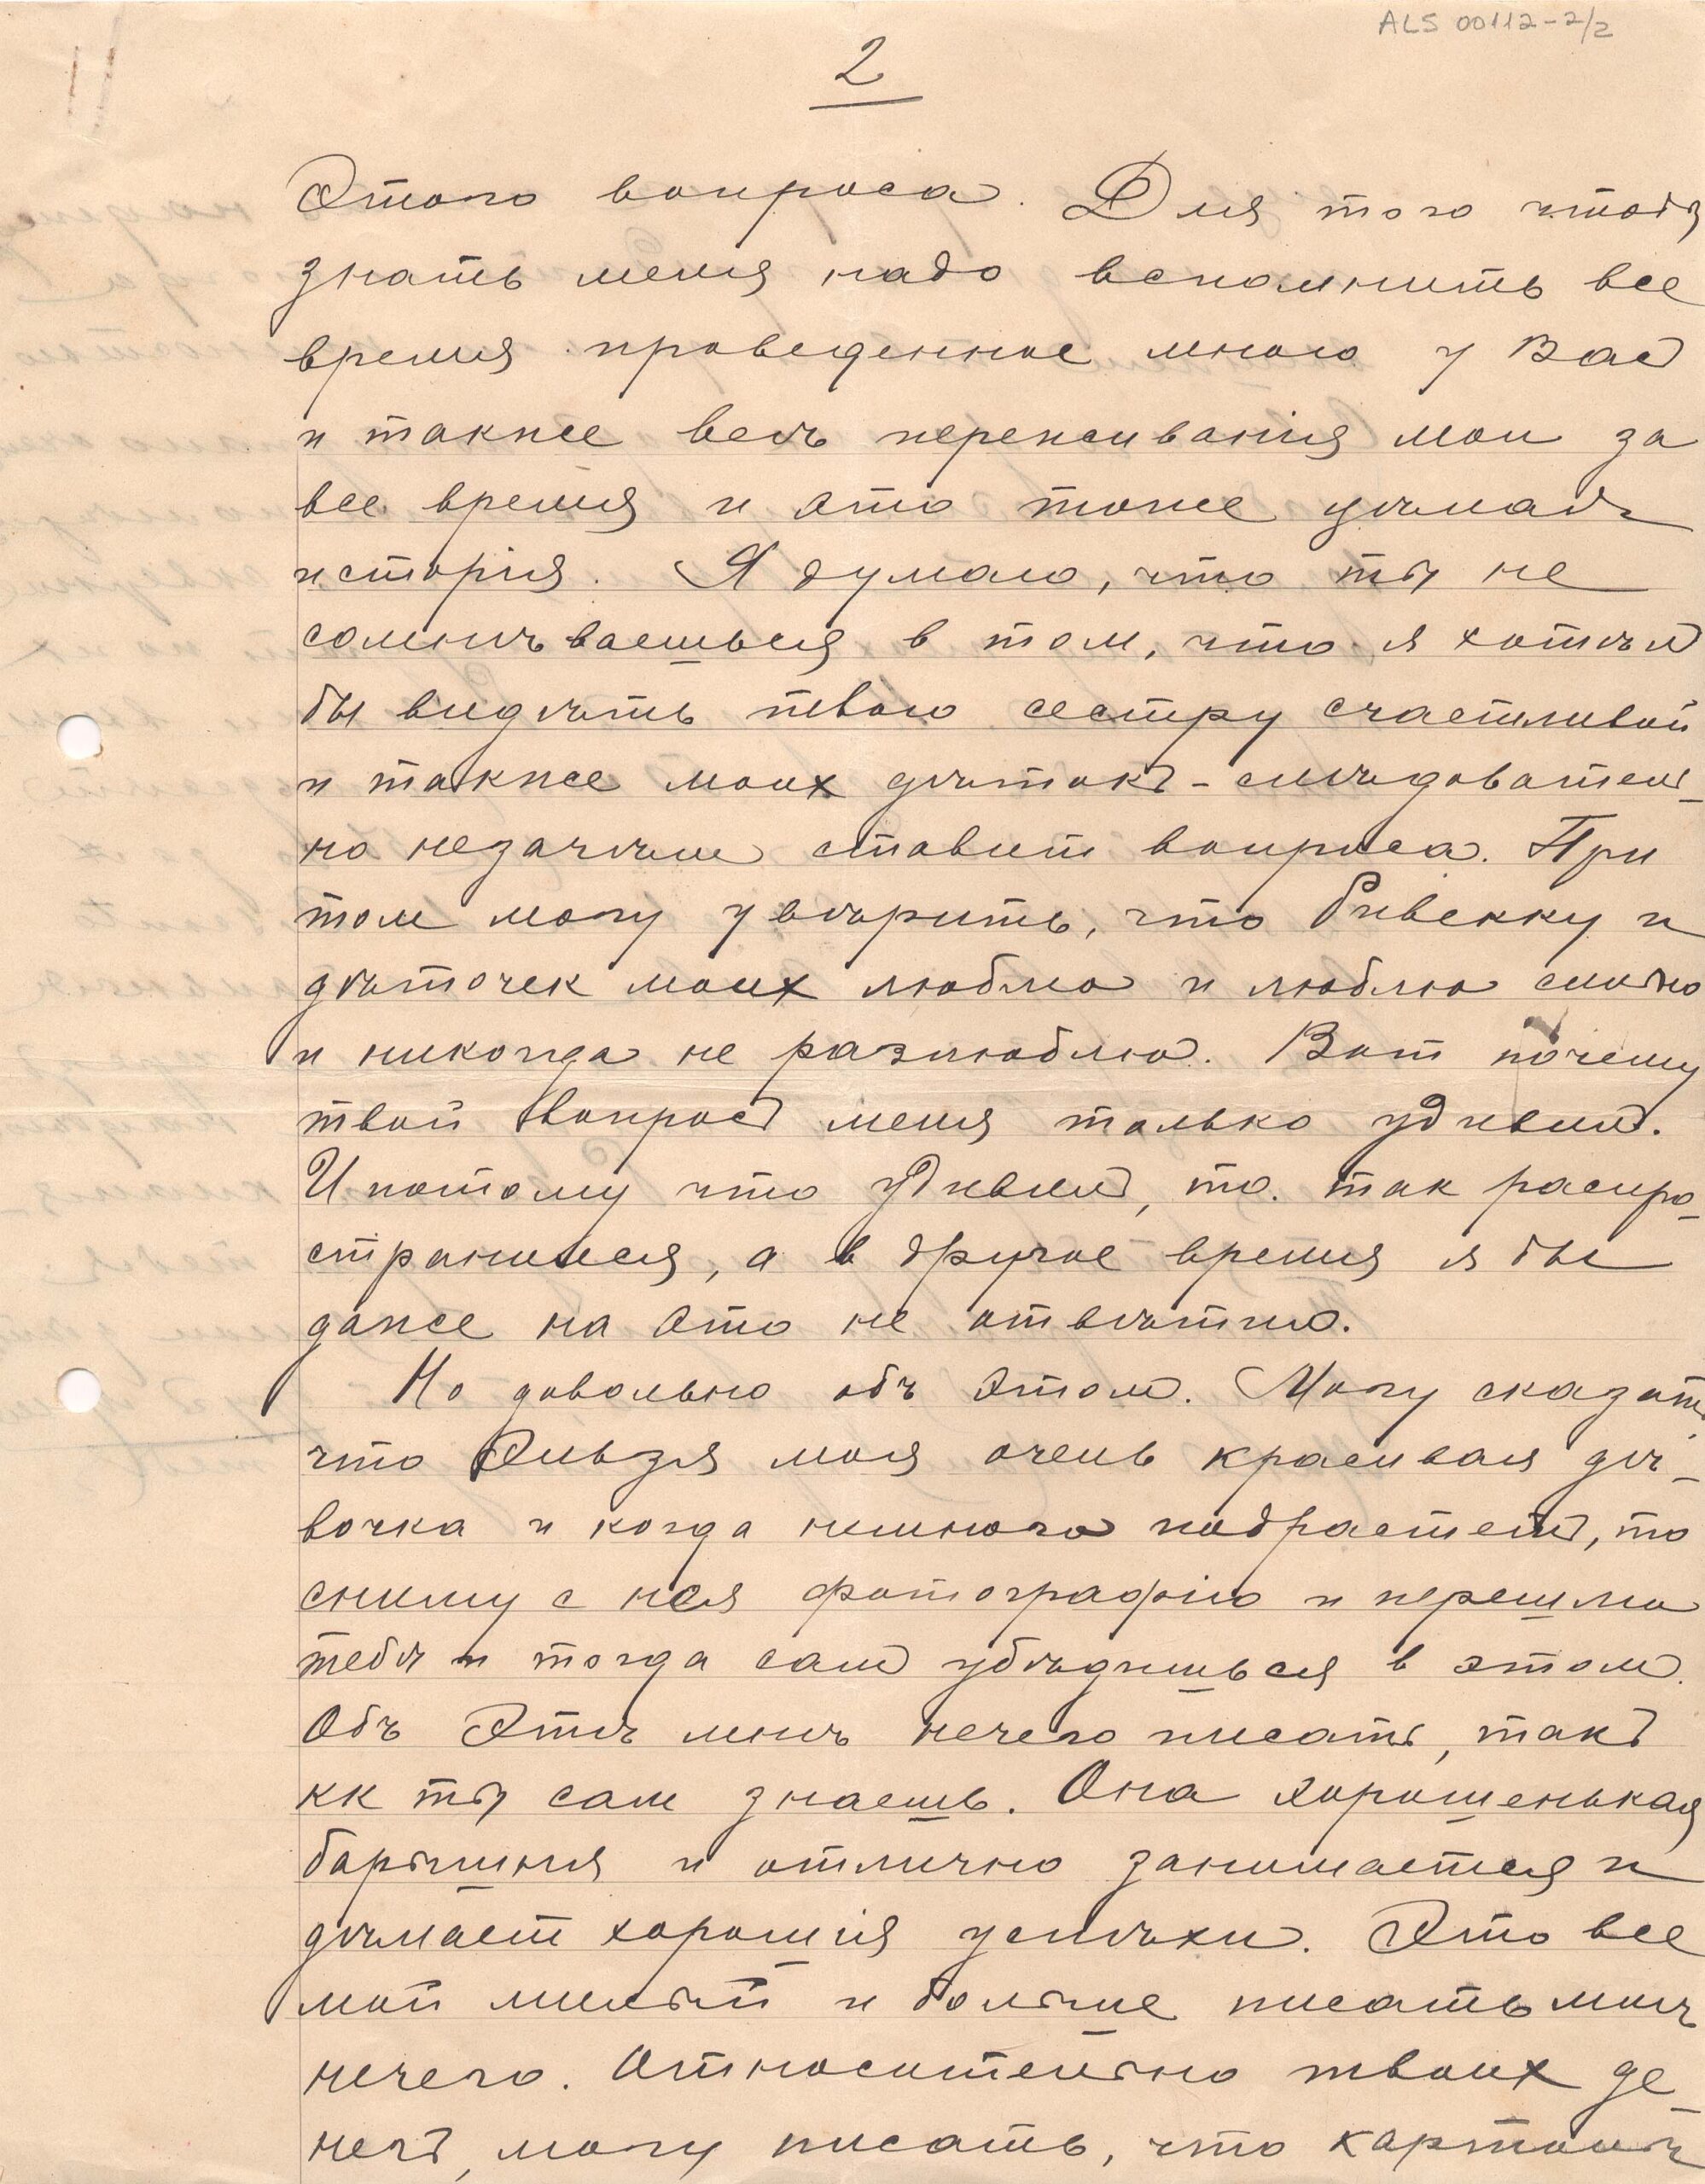 ALS 00112-2/2
2
Этого вопроса. Для того чтобы
знать меня надо вспомнить все
время проведенное мною у Вас
и также всѣ переживанія мои за
все время и это тоже цѣлая
исторія. Я думаю, что ты не
сомнѣваешься в том, что я хотѣл
бы видѣть твою сестру счастливой
и также моих дѣтокъ - слѣдователь_
но незачѣм ставит вопроса. При
том могу увѣрить, что Ривекку и
дѣточек моих люблю и люблю сильно
и никогда не разлюблю. Вот почему
твой вопросъ меня только удивил.
И потому что удивил, то так распро_
странился, а в другое время я бы
даже на это не отвѣтил.
Но довольно объ этом. Могу сказать
что Эльзя моя очень красивая дѣ_
вочка и когда немного подрастетъ, то
сниму с нея фотографію и перешлю
тебѣ и тогда сам убѣдишься в этом.
Объ Этѣ мнѣ нечего писать, такъ
кк ты сам знаешь. Она хорошенькая
барышня и отлично занимается и
дѣлает хорошія успѣхи. Это все
мой милый и больше писать мнѣ
нечего. Относительно твоих де_
негъ, могу писать, что